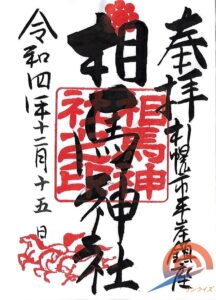 奉拝 札幌市平岸鎮座
相馬神社
相馬神
社之印
令和四年十二月十五日